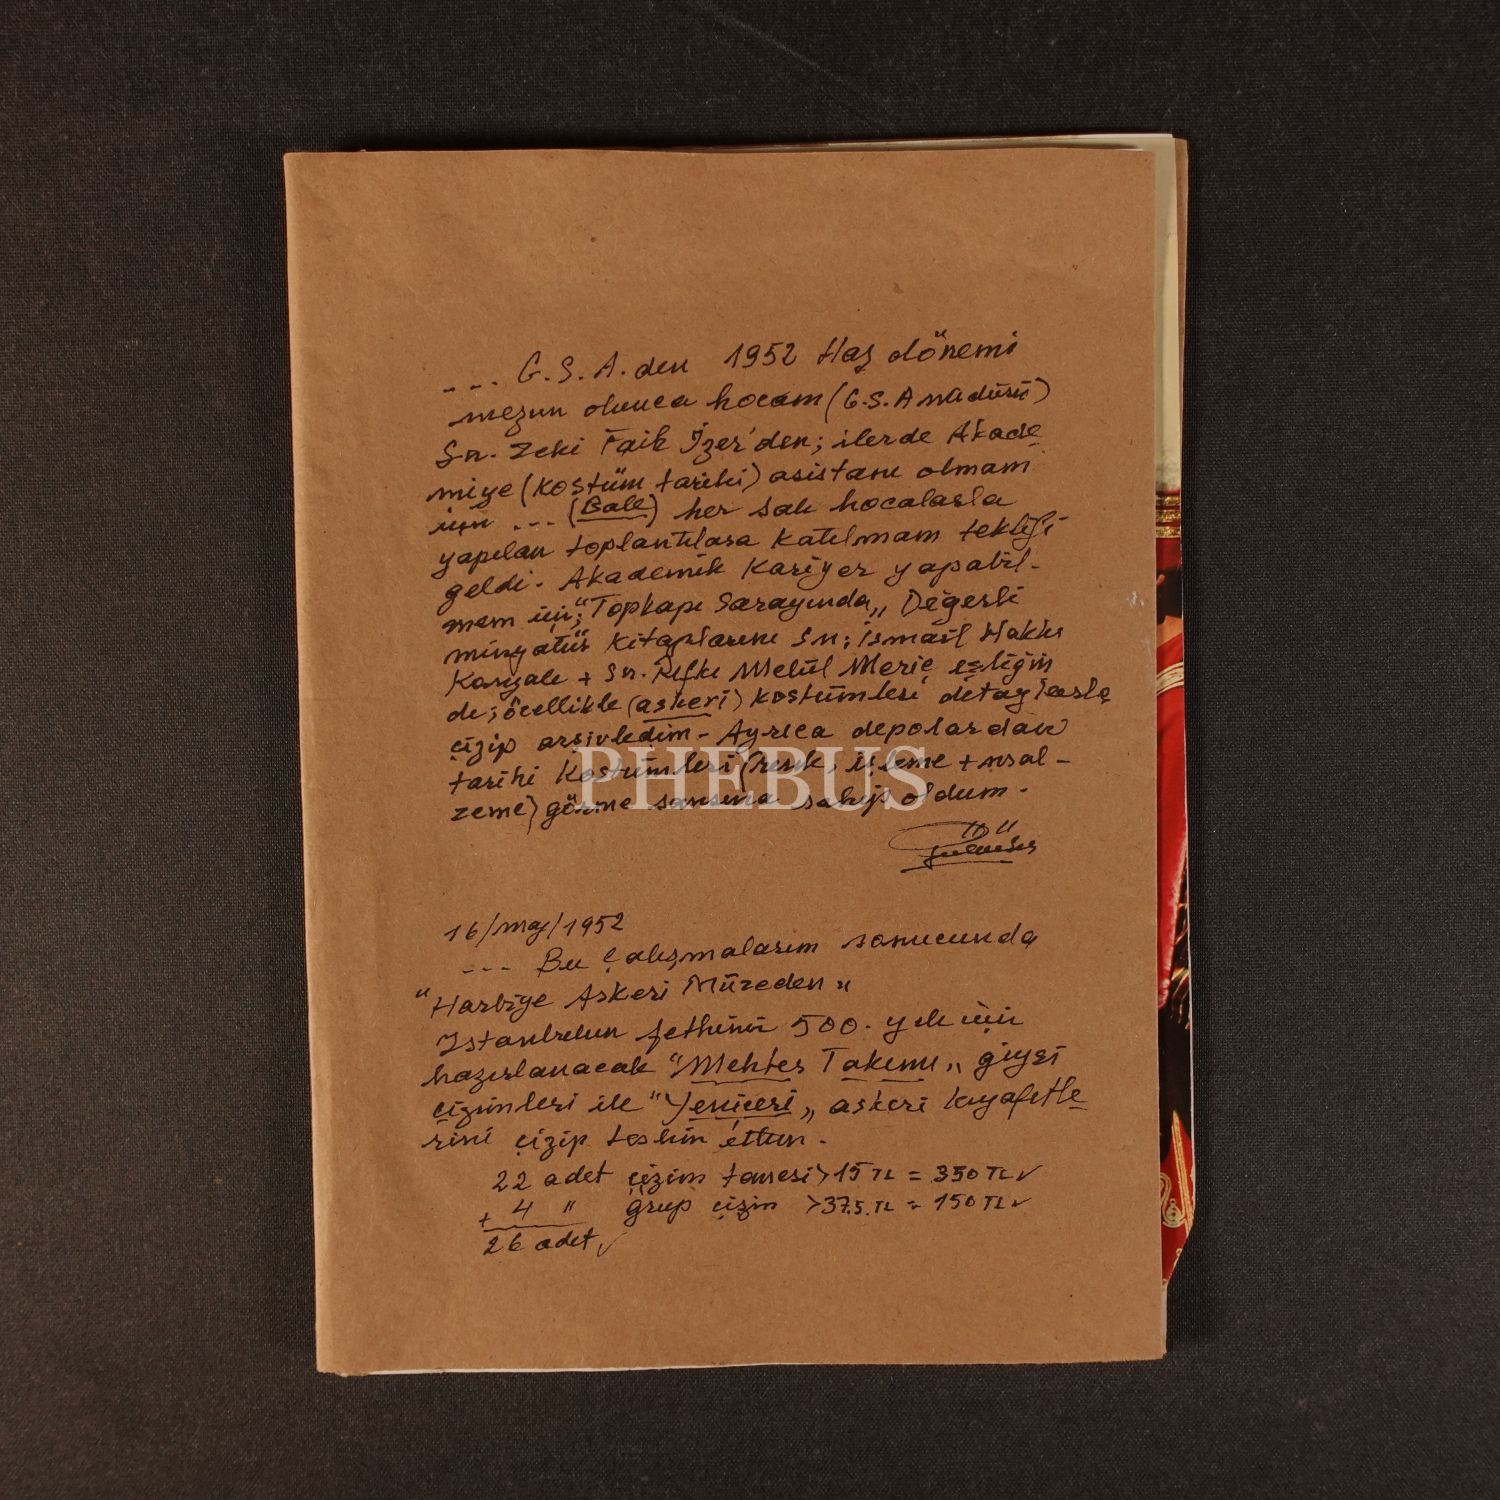 ... G.S.A.den 1952 Haz dönemi
mezun olunca hocam (G.S.A müdürü)
Sn. Zeki Faik İzer'den; ilerde Akade
miye (kostüm tarihi) asistanı olmam
için ... her salı hocalarla
yapılan toplantılara katılmam teklifi
geldi. Akademik Kariyer yapabil-
mem için; "Topkapı Sarayında" Değerli
minyatür kitaplarını Sn; İsmail Hakkı
+ Sn. Rıfkı Melül Meriç eşliğin
de; özellikle (askeri) kostümleri detaylarla
çizip arşivledim - Ayrıca depolardan
tarihi kostümleri (renk, işleme + mal-
zeme) görme şansına sahip oldum -
PHEBUS
16/may/1952
... Bu çalışmalarım sonucunda
"Harbiye Askeri Müzeden"
Istanbulun fethinin 500. yılı için
hazırlanacak "Mehter Takımı" giysi
çizimleri ile "Yeniçeri" askeri kıyafetle
rini çizip teslim ettim -
22 adet çizim tanesi > 15 TL = 350 TL ✓
+ 4 " grup çizim > 37.5. TL = 150 TL ✓
26 adet ✓